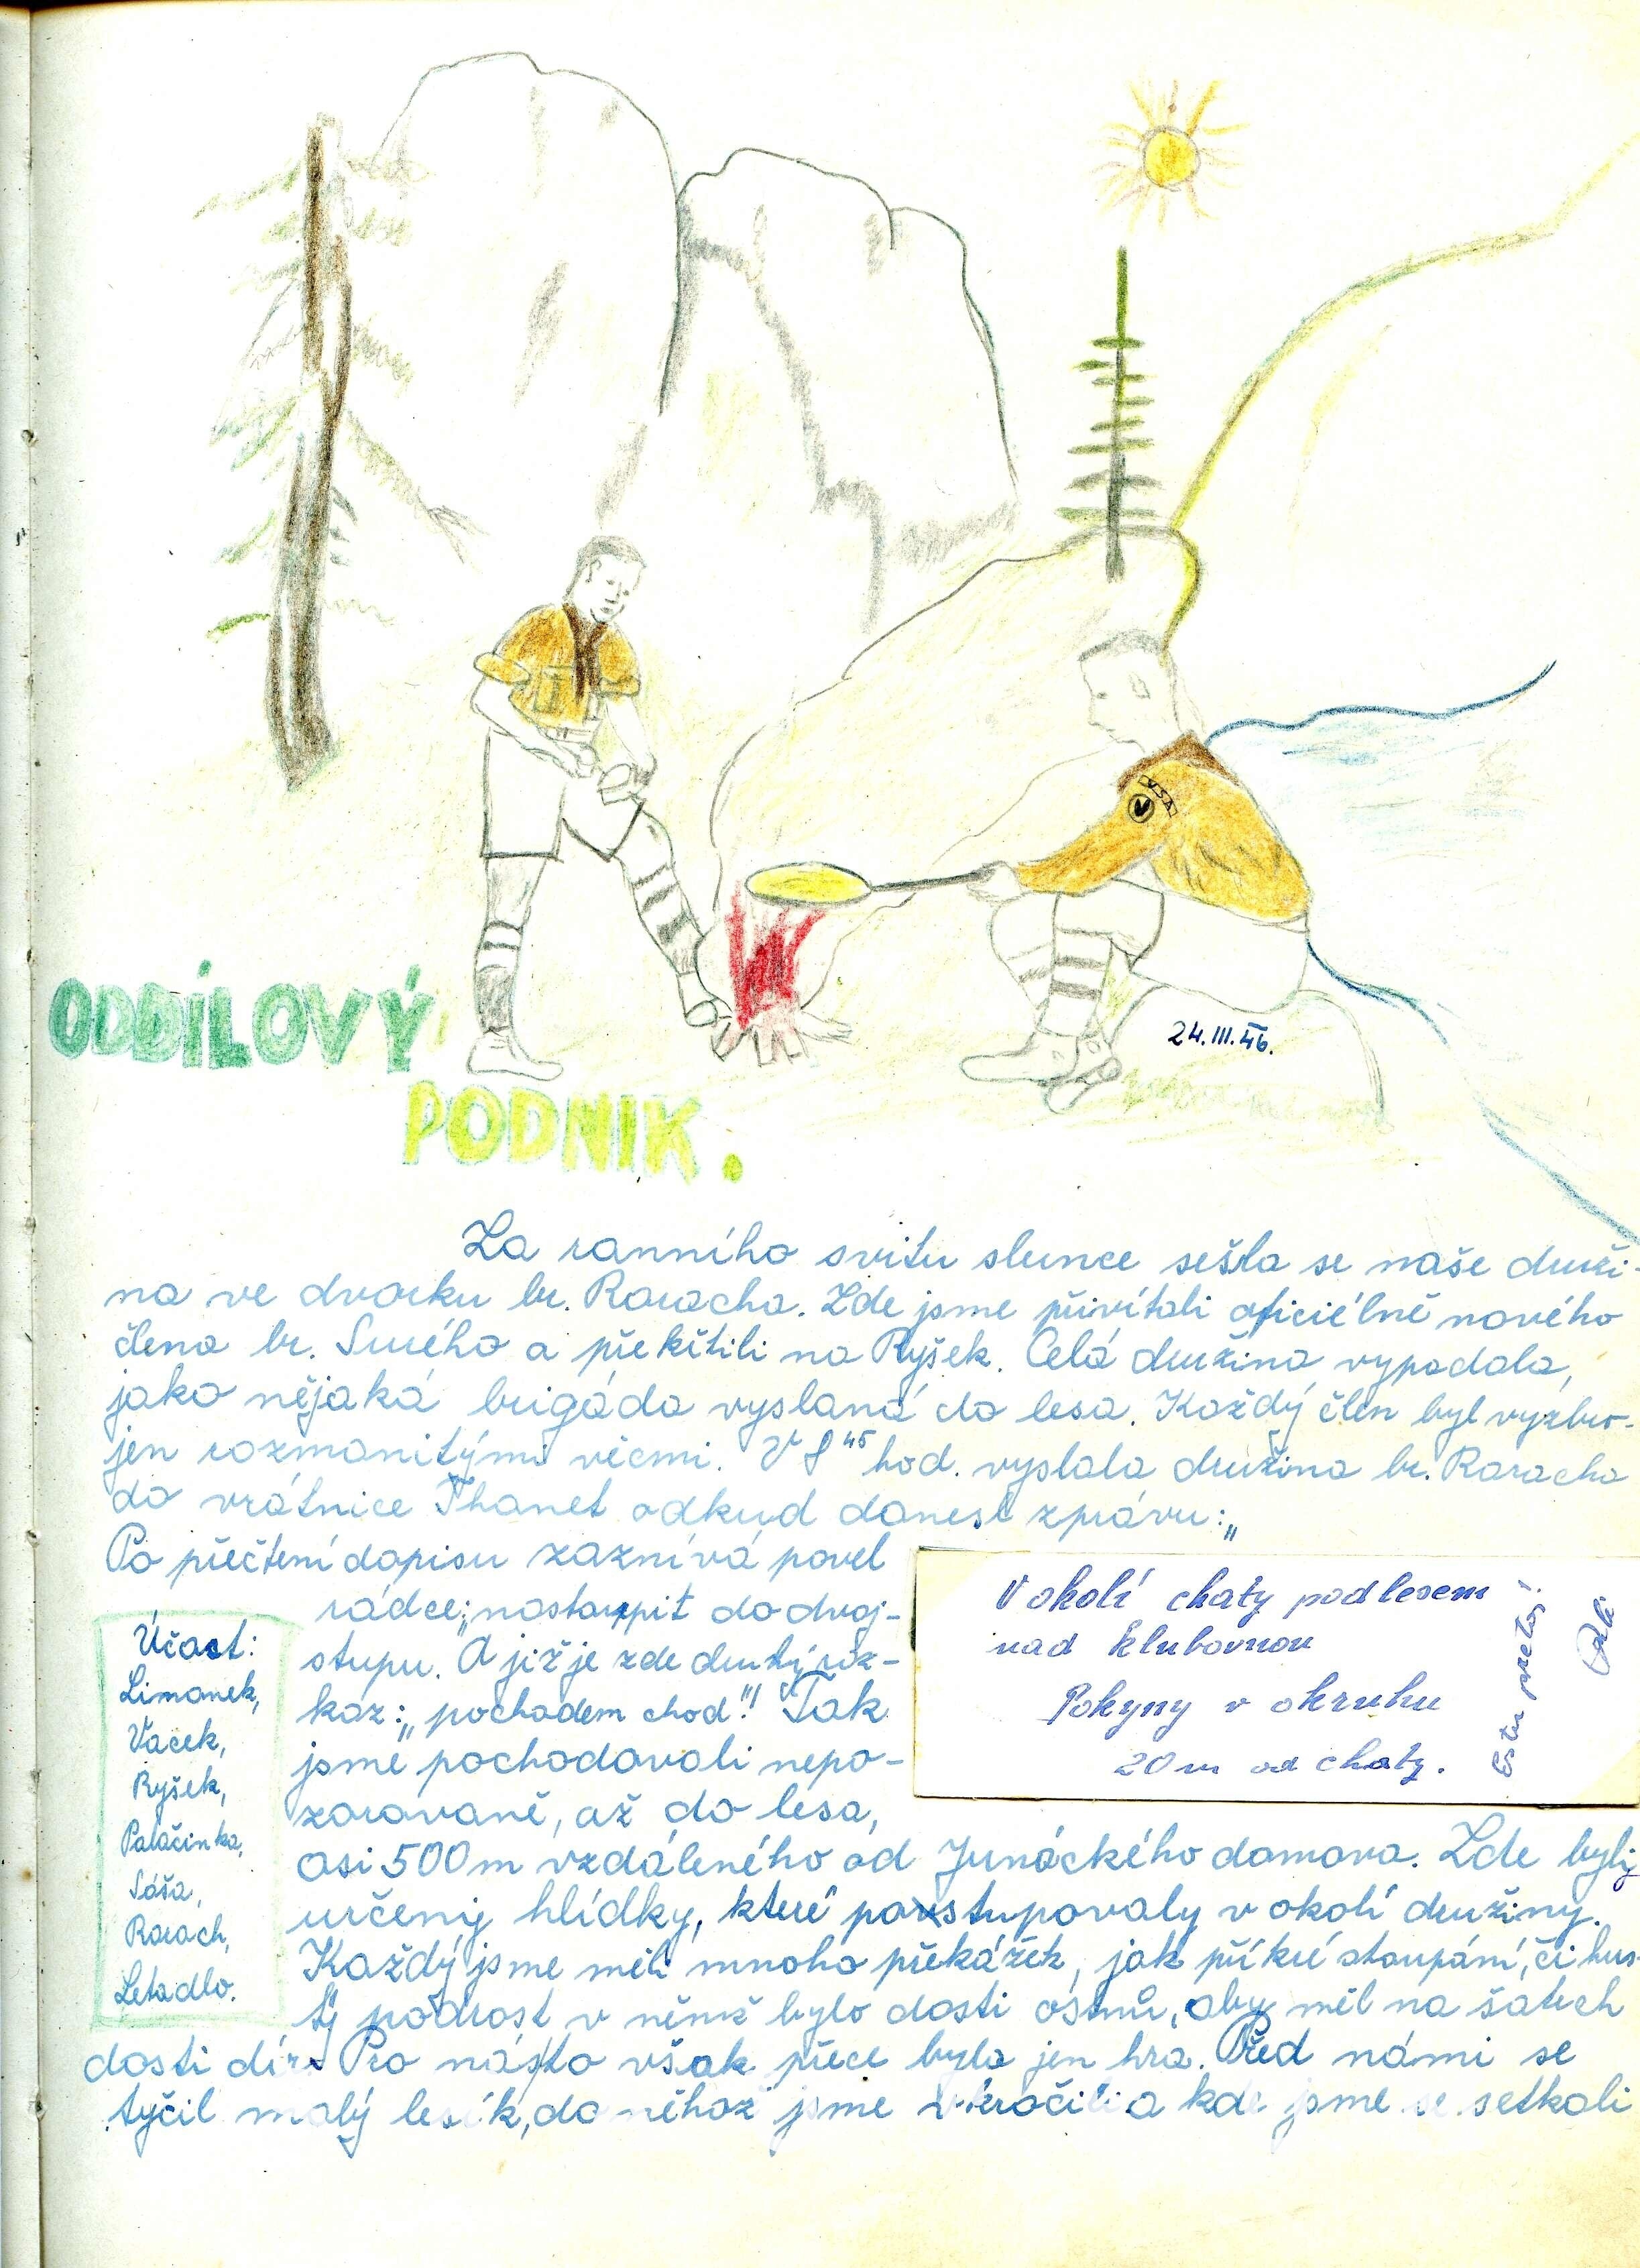 VSA
24.III.46.
ODDÍLOVÝ
PODNIK.
Za ranního svitu slunce sešla se naše druži-
na ve dvorku br. Raracha. Zde jsme přivítali oficiélně nového
člena br. Surého a překřtili na Ryšek. Celá družina vypadala,
jako nějaká brigáda vyslaná do lesa. Každý člen byl vyzbro-
jen rozmanitými věcmi. V 8 45 hod. vyslala družina br. Raracha
do vrátnice Thonet odkud donesl zprávu:„
Po přečtení dopisu zaznívá povel
rádce:„nastoupit do dvoj-
stupu. A již je zde druhý roz-
kaz:„pochodem chod"! Tak
jsme pochodovali nepo-
zorovaně, až do lesa,
asi 500m vzdáleného od Junáckého domova. Zde byly
určeny hlídky, které postupovaly v okolí družiny.
Každý jsme měli mnoho překážek, jak příkré stoupání, či hus-
tý podrost v němž bylo dosti ostnů, aby měl na šatech
dosti děr. Pro nás to však přece byla jen hra. Před námi se
tyčil malý lesík, do něhož jsme vkročili a kde jsme se setkali
V okolí chaty pod lesem
nad klubovnou
Pokyny v okruhu
20 m od chaty.
Účast:
Limonek,
Vacek,
Ryšek,
Palačinka,
Sáša,
Rarach,
Letadlo.